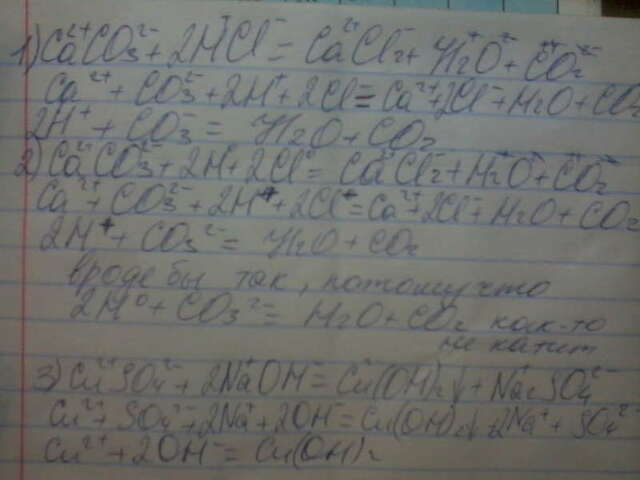 1) Ca²⁺CO₃²⁻ + 2H⁺Cl⁻ = Ca²⁺Cl₂⁻ + H₂⁺O²⁻ + C⁴⁺O₂²⁻
Ca²⁺ + CO₃²⁻ + 2H⁺ + 2Cl⁻ = Ca²⁺ + 2Cl⁻ + H₂O + CO₂
2H⁺ + CO₃²⁻ = H₂O + CO₂
2) Ca²⁺CO₃²⁻ + 2H + 2Cl = Ca²⁺Cl₂⁻ + H₂⁺O²⁻ + C⁴⁺O₂²⁻
Ca²⁺ + CO₃²⁻ + 2H⁺ + 2Cl⁻ = Ca²⁺ + 2Cl⁻ + H₂O + CO₂
2H⁺ + CO₃²⁻ = H₂O + CO₂
вроде бы так, потому что
2H⁰ + CO₃²⁻ = H₂O + CO₂ как-то
не катит
3) Cu²⁺SO₄²⁻ + 2Na⁺OH⁻ = Cu(OH)₂↓ + Na₂SO₄²⁻
Cu²⁺ + SO₄²⁻ + 2Na⁺ + 2OH⁻ = Cu(OH)₂↓ + 2Na⁺ + SO₄²⁻
Cu²⁺ + 2OH⁻ = Cu(OH)₂